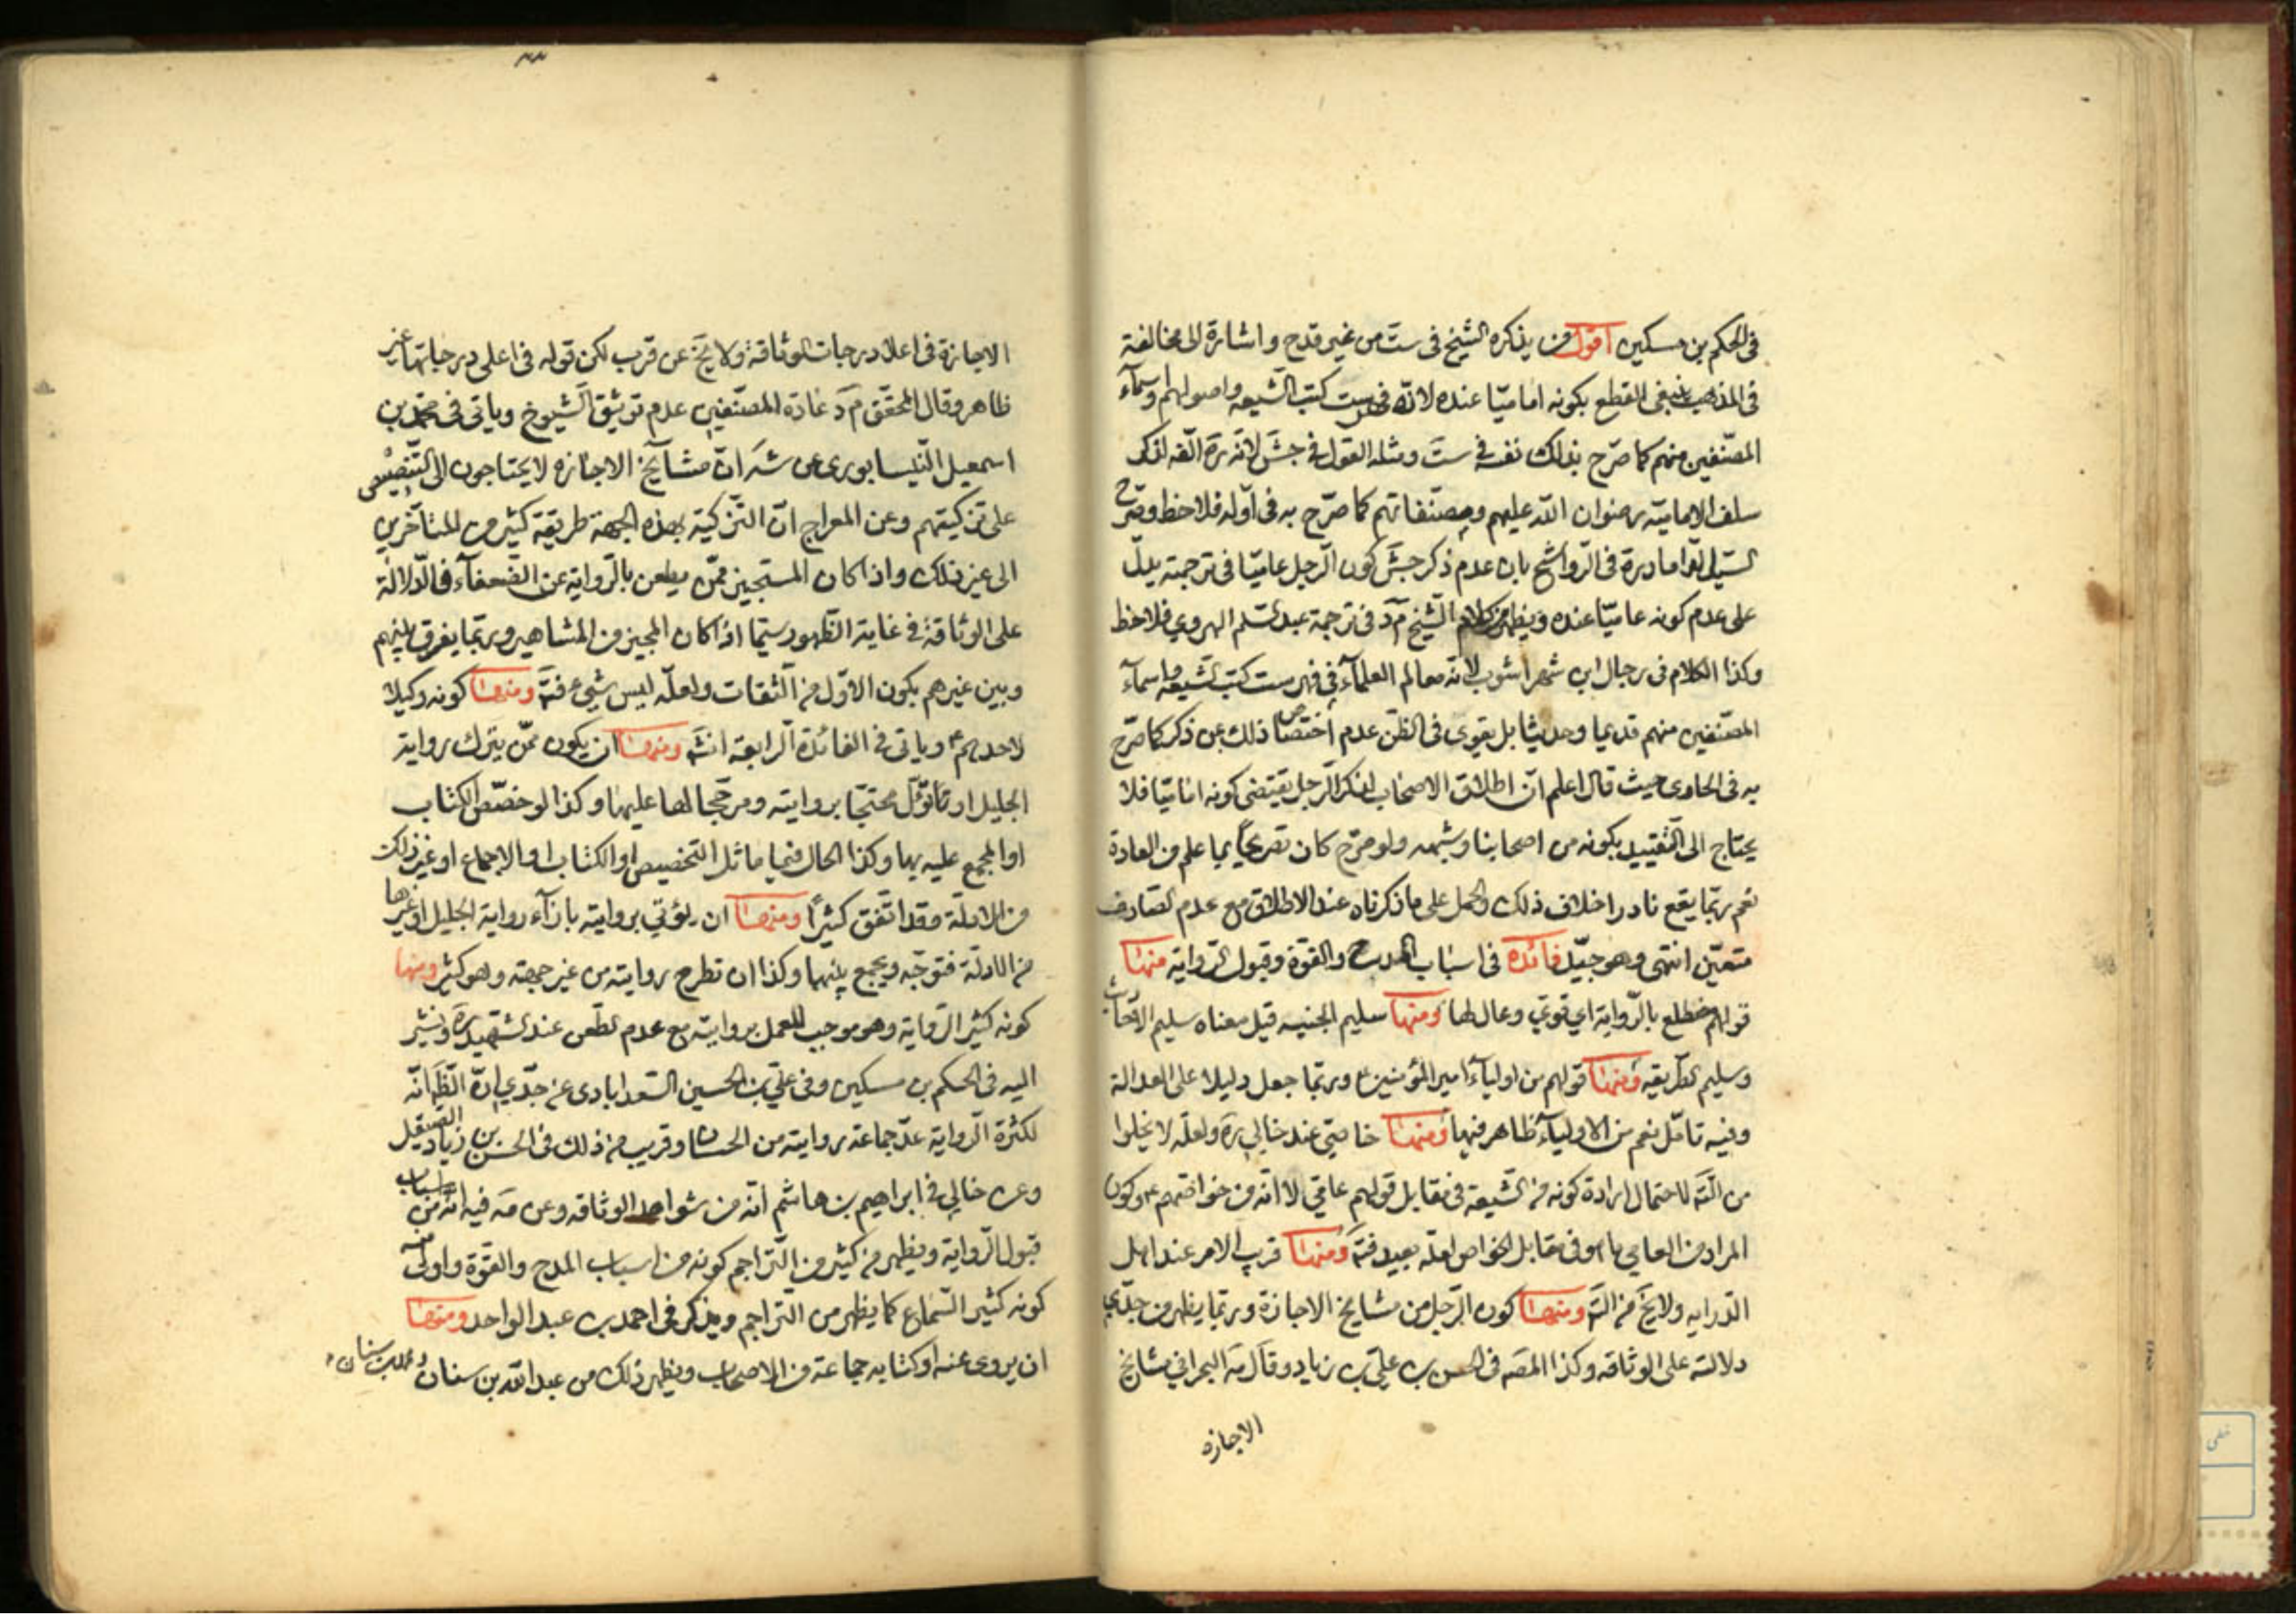 في الحكم بن مسكين اقول من يذكره الشيخ في ست من غير قدح واشارة الى مخالفة
في المذهب ينبغي القطع بكونه اماميّا عنده لانّه فهرست كتب الشيعه واصولهم واسمآء
المصنّفين منهم كما صرّح بذلك نفسه في ست ومثله القول في جش لانّه ره الّفه لذكر
سلف الاماميّه رضوان اللّه عليهم ومصنّفاتهم كما صرّح به في اوّله فلاحظ وصرّح
السيّد الداماد ره في الرّواشح بان عدم ذكر جش كون الرّجل عاميّا في ترجمته يدلّ
على عدم كونه عاميّا عنده ويظهر من كلام الشّيخ م د في ترجمة عبد السّلم الهروي فلاحظ
وكذا الكلام في رجال ابن شهراشوب لانّه معالم العلمآء في فهرست كتب الشّيعه واسمآء
المصنّفين منهم قديما وحديثا بل يقوى في الظنّ عدم اختصاص ذلك بمن ذكر كما صرّح
به في الحاوي حيث قال اعلم انّ اطلاق الاصحاب لذكر الرّجل يقتضي كونه اماميّا فلا
يحتاج الى التّقييد بكونه من اصحابنا وشبهه ولو صرّح كان تصريحاً بما علم من العادة
نعم ربّما يقع نادرا خلاف ذلك والحمل على ما ذكرناه عند الاطلاق مع عدم الصّارف
متعيّن انتهى وهو جيّد فائدة في اسباب المدح والقوّة وقبول الرّواية منها
قولهم مضطلع بالرّواية اي قوي وعال لها ومنها سليم الجنبه قيل معناه سليم الاحاديث
وسليم الطّريقه ومنها قولهم من اوليآء امير المؤمنين ع وربّما جعل دليلا على العدالة
وفيه تامّل نعم من الاوليآء ظاهر فيها ومنها خاصّي عند خالي ره ولعلّه لا يخلوا
من التّه لاحتمال ارادة كونه من الشّيعة في مقابل قولهم عامّي لا انّه من خواصّهم ع وكون
المراد من العامي ما هو في مقابل الخواص لعلّه بعيد فته ومنها قريب الامر عند اهل
الدّرايه ولا يخ من التّه ومنها كون الرّجل من مشايخ الاجازة وربّما يظهر من جدّي
دلالته على الوثاقه وكذا المصه في الحسن بن علي بن زياد وقال مه البحراني مشايخ
الاجازه
الاجازة في اعلا درجات الوثاقة ولا يخ عن قرب لكن قوله في اعلى درجاتها غير
ظاهر وقال المحقّق م د عادة المصنّفين عدم توثيق الشّيوخ وياتي في محمّد بن
اسمعيل النّيسابوري عن شه انّ مشآيخ الاجازه لا يحتاجون الى التّنصيص
على تزكيتهم وعن المعراج انّ التّزكية بهذه الجهة طريقة كثير من المتاخّرين
الى غير ذلك واذا كان المستجيز ممّن يطعن بالرّواية عن الضّعفآء فالدّلالة
على الوثاقة في غاية الظّهور سيّما اذا كان المجيز من المشاهير وربّما يفرق بينهم
وبين غيرهم بكون الاوّل من الثقات ولعلّه ليس بشيء فته ومنها كونه وكيلا
لاحدهم ع وياتي في الفائدة الرّابعة انشه ومنها ان يكون ممّن يترك رواية
الجليل او تاوّل محتجّا بروايته ومرجّحا لها عليها وكذا لو خصّص الكتاب
او المجمع عليه بها وكذا الحال فيما ماثل التخصيص او الكتاب او الاجماع او غير ذلك
من الادلّة وقد اتّفق كثيراً ومنها ان يؤتي بروايته بازآء رواية الجليل او غيرها
من الادلّة فتوجّه ويجمع بينهما وكذا ان تطرح روايته من غير جهته وهو كثير ومنها
كونه كثير الرّواية وهو موجب للعمل بروايته مع عدم الطّعن عند الشّهيد ره ونشير
اليه في الحكم بن مسكين وفي علي بن الحسين السّعدابادي عن جدّي انّ الظّه انّه
لكثرة الرّواية عدّ جماعة روايته من الحسان وقريب من ذلك في الحسن بن زياد الصيقل
وعن خالي في ابراهيم بن هاشم انّه من شواهد الوثاقه وعن مه فيه انّه من اسباب
قبول الرّواية ويظهر من كثير من التّراجم كونه من اسباب المدح والقوّة واولى منه
كونه كثير السّماع كما يظهر من التّراجم ويذكر في احمد بن عبد الواحد ومنها
ان يروي عنه او كتابه جماعة من الاصحاب ويظهر ذلك من عبد اللّه بن سنان ومحمد بن سنان